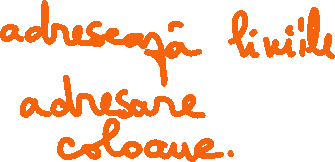 adresează liniile
adresare
coloane.